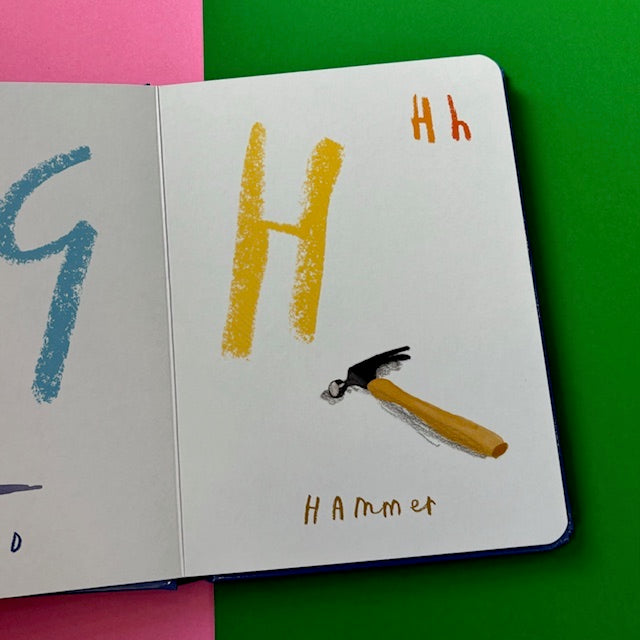 D
H h
H
HAmmer